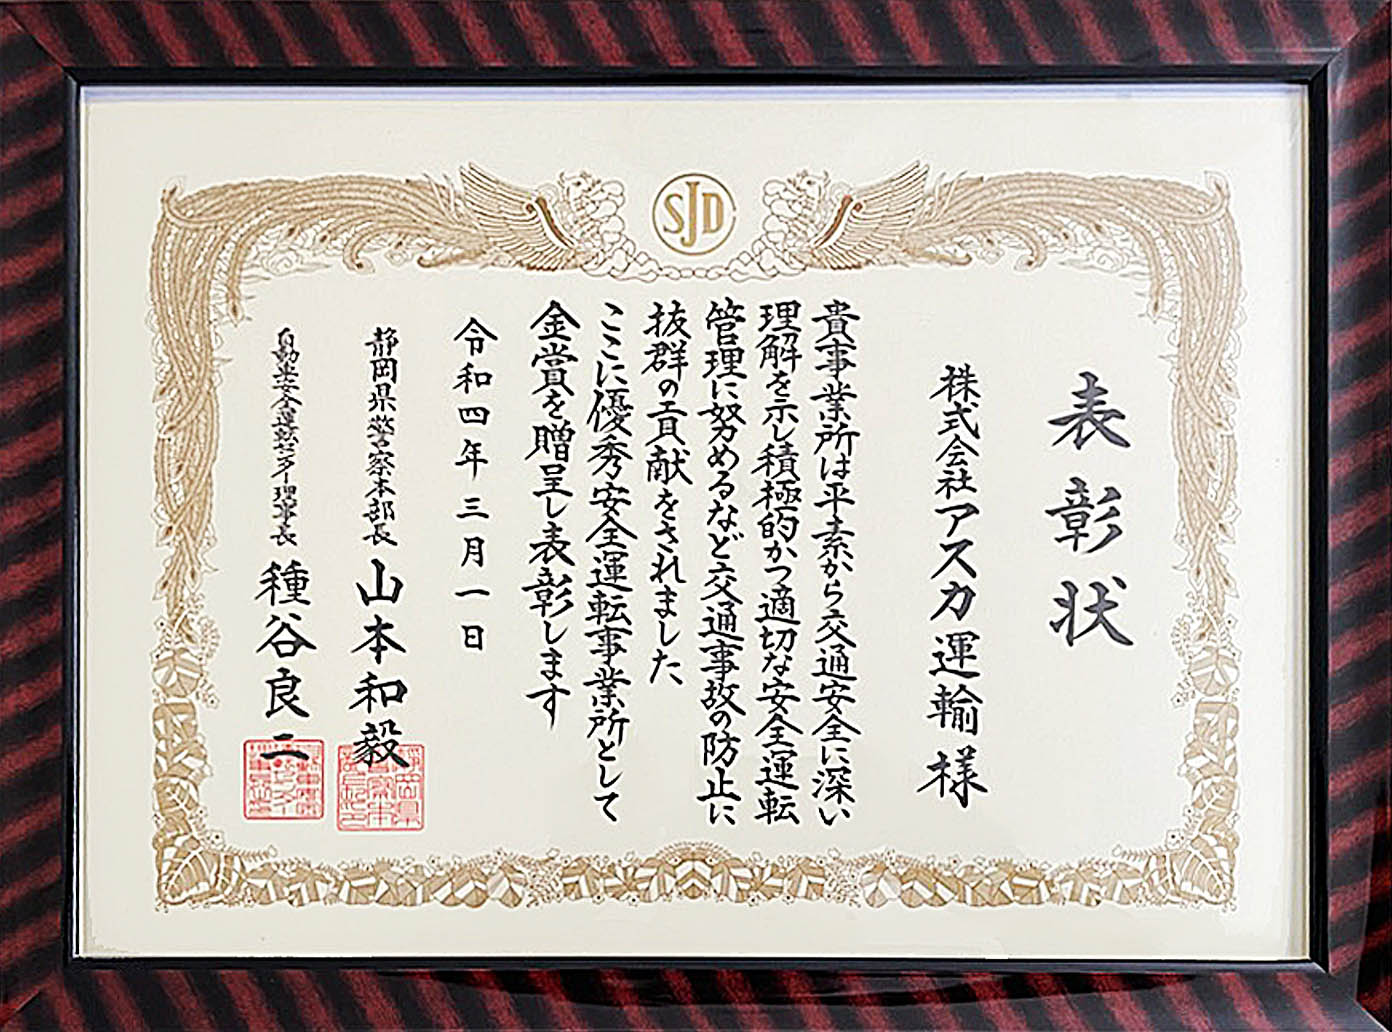 SJD
表彰状
株式会社アスカ運輸様
貴事業所は平素から交通安全に深い
理解を示し積極的かつ適切な安全運転
管理に努めるなど交通事故の防止に
抜群の貢献をされました
ここに優秀安全運転事業所として
金賞を贈呈し表彰します
令和四年三月一日
静岡県警察本部長 山本和毅
自動車安全運転センター理事長 種谷良二